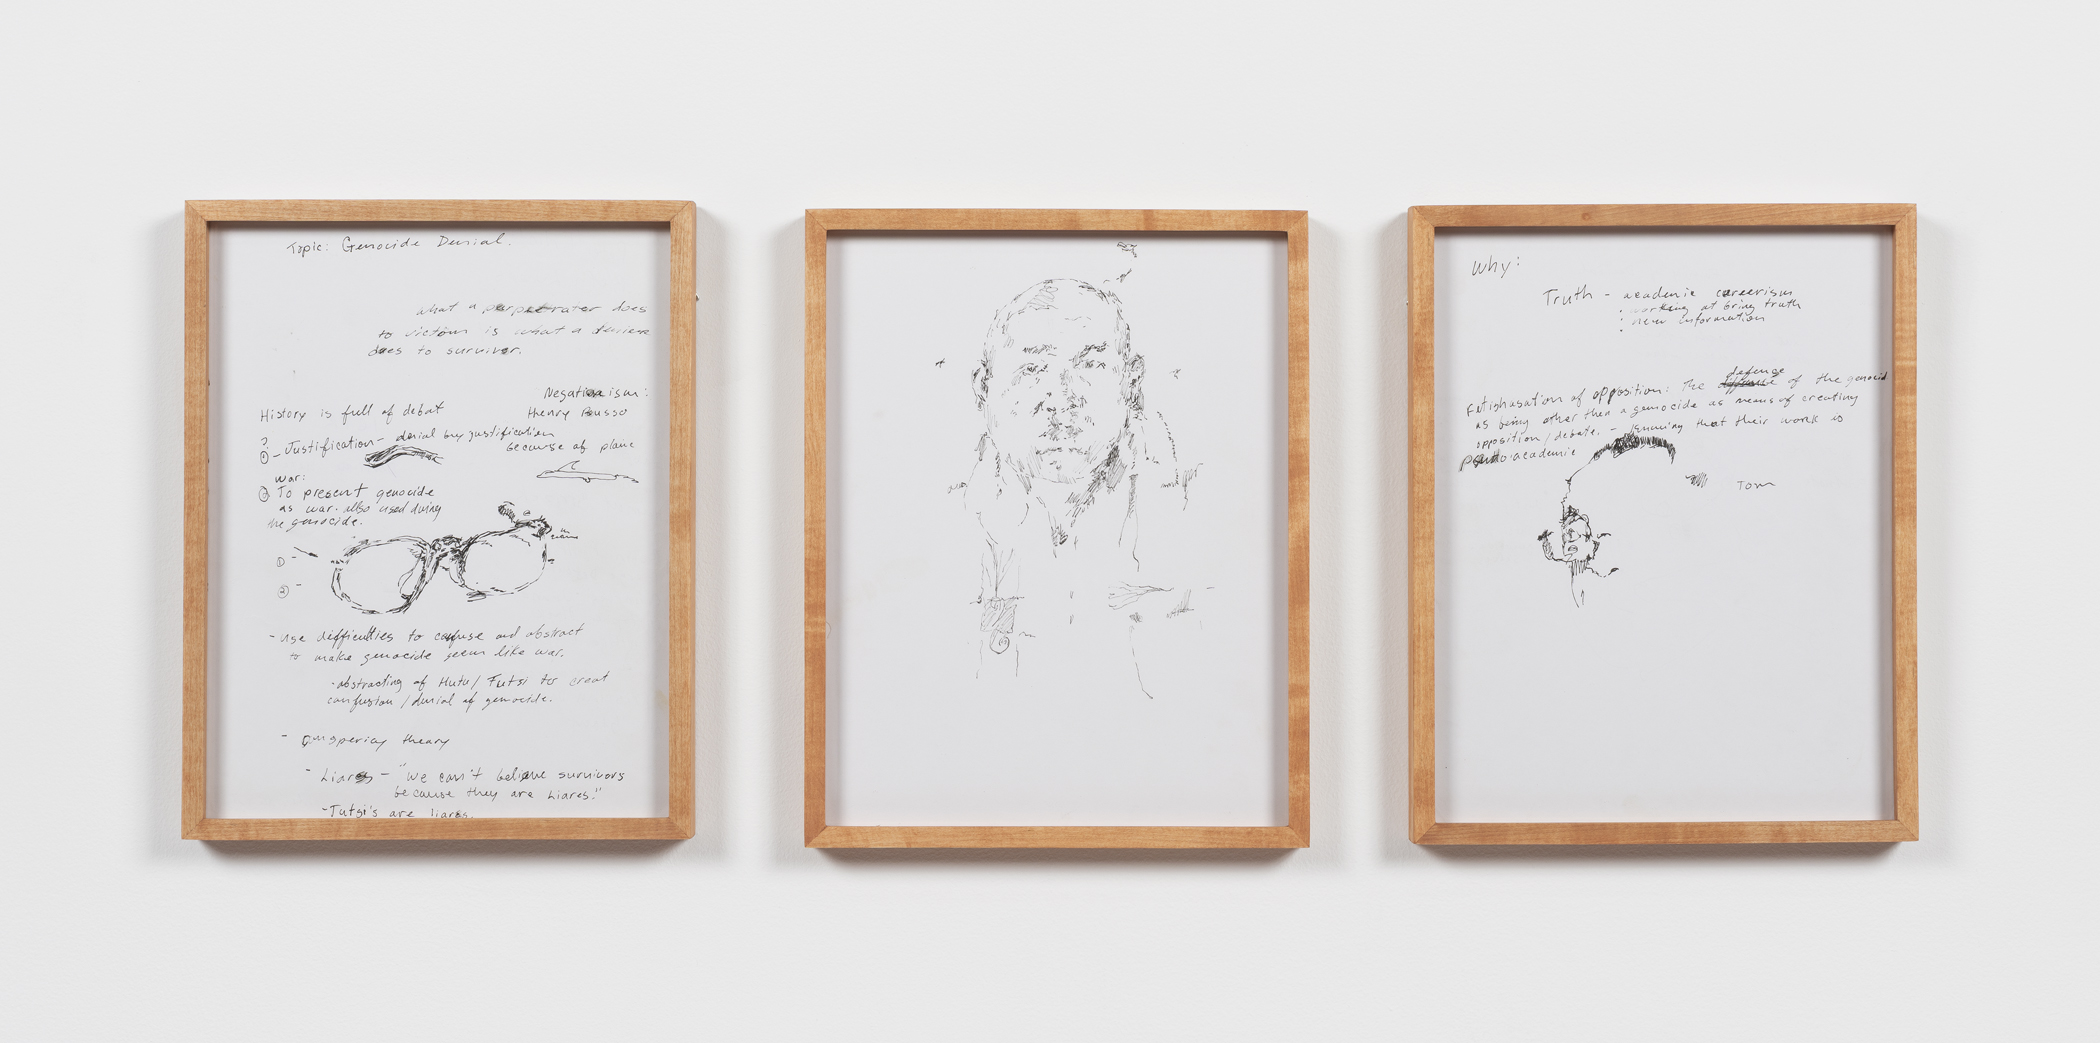 Topic: Genocide Denial.
what a perpetrater does
to victim is what a
does to survivor.
Negationism:
Henry Rousso
History is full of debat
① - Justification - denial by justification
because of plane
war:
② To present genocide
as war. also used during
the genocide.
① -
② -
- use difficulties to confuse and abstract
to make genocide seem like war.
· abstracting of Hutu / Tutsi to creat
confusion / denial of genocide.
- theory
- Liares - "we can't believe survivors
because they are Liares."
- Tutsi's are liares.
Why:
Truth - academic careerism
: working at bring truth
: new information
defence
Fetishasation of opposition: The of the genocid
as being other then a genocide as means of creating
opposition / debate. - knowing that their work is
pseudo-academic
Tom